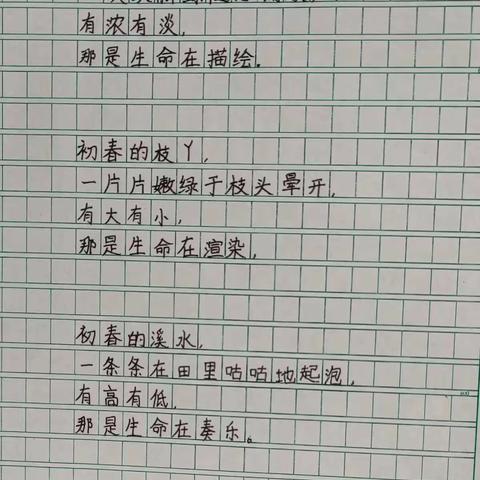 有浓有淡，
那是生命在描绘．
初春的枝丫，
一片片嫩绿于枝头晕开，
有大有小，
那是生命在渲染，
初春的溪水，
一条条在田里咕咕地起泡，
有高有低，
那是生命在奏乐。